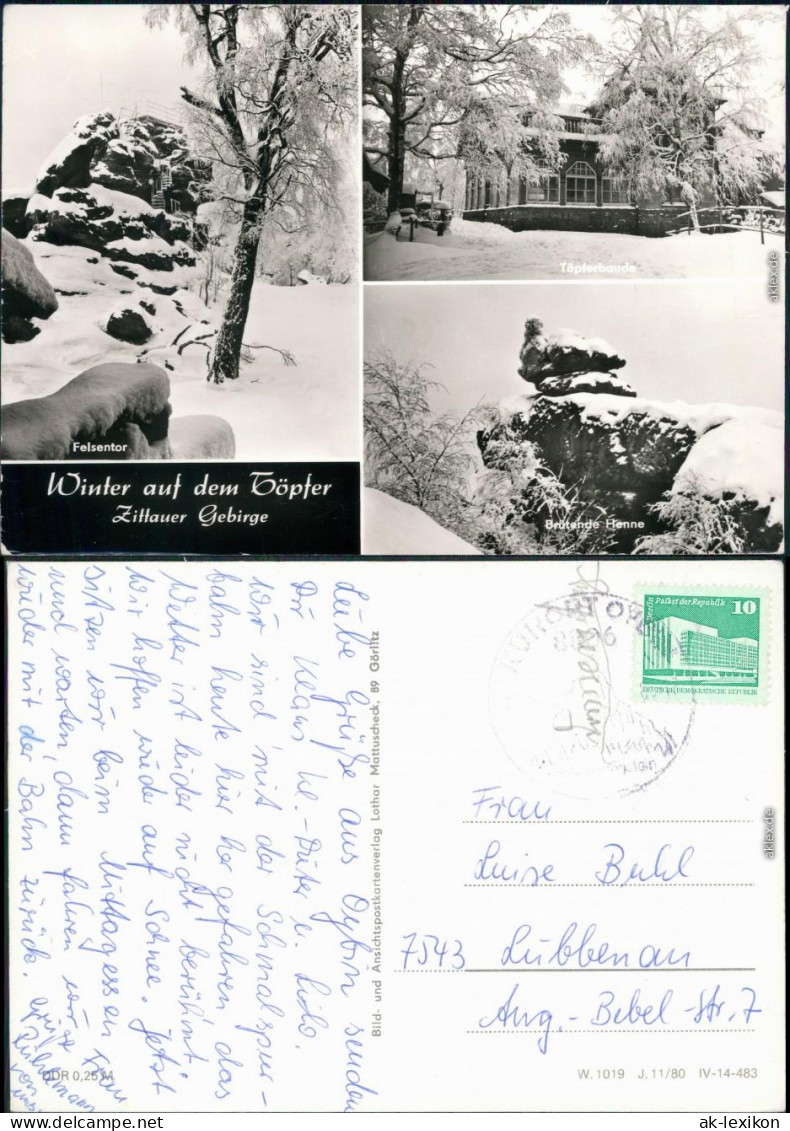 Felsentor
Töpferbaude
Brütende Henne
Winter auf dem Töpfer
Zittauer Gebirge
ak-lex.de
Liebe Grüße aus Oybin senden
Dir Klaus
wir sind mit der Schmalspur-
bahn heute hier her gefahren das
Wetter ist leider nicht berühmt
Wir hoffen wieder auf Schnee. Jetzt
sitzen wir beim Mittagessen
und warten, dann fahren wir
wieder mit der Bahn zurück.
Bild- und Ansichtspostkartenverlag Lothar Mattuscheck, 89 Görlitz
DDR 0,25 M
KURORT OYBIN
Berlin Palast der Republik 10
DEUTSCHE DEMOKRATISCHE REPUBLIK
Frau
Luise Buhl
7543 Lübbenau
Aug.-Bebel-Str. 7
ak-lex.de
W. 1019 J. 11/80 IV-14-483
ak-lexikon